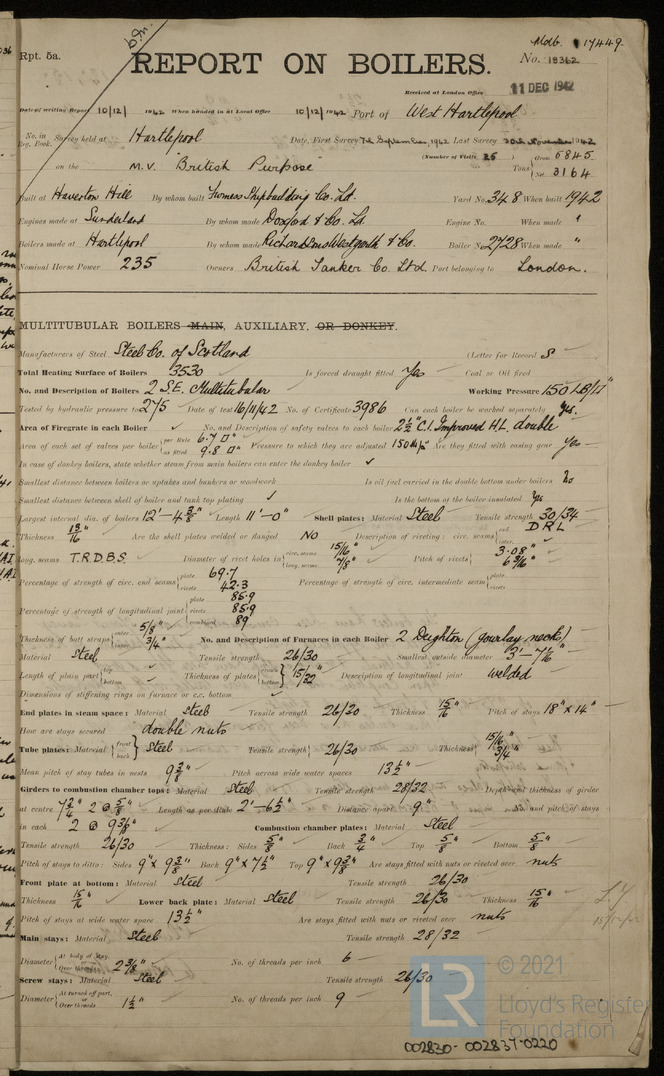 Mdb. 17449
Rpt. 5a.
REPORT ON BOILERS.
No. 18362
Received at London Office 11 DEC 1942
Date of writing Report 10/12/ 1942 When handed in at Local Office 10/12/1942 Port of West Hartlepool
No. in Reg. Book. Survey held at Hartlepool Date, First Survey 7th September, 1942 Last Survey 30th November 1942
(Number of Visits 25)
on the M.V. British Purpose Tons Gross 6845 Net 3164
Built at Haverton Hill By whom built Furness Shipbuilding Co. Ld. Yard No. 348 When built 1942
Engines made at Sunderland By whom made Doxford & Co. Ld. Engine No. When made "
Boilers made at Hartlepool By whom made Richardsons Westgarth & Co. Boiler No. 2728 When made "
Nominal Horse Power 235 Owners British Tanker Co. Ltd. Port belonging to London.
MULTITUBULAR BOILERS MAIN, AUXILIARY, OR DONKEY.
Manufacturers of Steel Steel Co. of Scotland (Letter for Record S
Total Heating Surface of Boilers 3530 Is forced draught fitted Yes Coal or Oil fired
No. and Description of Boilers 2 S.E. Multitubular Working Pressure 150 LB/□"
Tested by hydraulic pressure to 275 Date of test 16/11/42 No. of Certificate 3986 Can each boiler be worked separately Yes.
Area of Firegrate in each Boiler ✓ No. and Description of safety valves to each boiler 2½" C.I. Improved H.L. double
Area of each set of valves per boiler per Rule 6.7 □" as fitted 9.8 □" Pressure to which they are adjusted 150 Are they fitted with easing gear Yes
In case of donkey boilers, state whether steam from main boilers can enter the donkey boiler ✓
Smallest distance between boilers or uptakes and bunkers or woodwork Is oil fuel carried in the double bottom under boilers No
Smallest distance between shell of boiler and tank top plating ✓ Is the bottom of the boiler insulated Yes
Largest internal dia. of boilers 12'-4⅜" Length 11'-0" Shell plates: Material Steel Tensile strength 30/34
Thickness 13/16" Are the shell plates welded or flanged No Description of riveting: circ. seams end D.R.L inter.
long. seams T.R.D.B.S. Diameter of rivet holes in circ. seams 15/16" long. seams 7/8" Pitch of rivets 3.08" 6 3/16"
Percentage of strength of circ. end seams plate 69.7 rivets 42.3 Percentage of strength of circ. intermediate seam plate rivets
Percentage of strength of longitudinal joint plate 85.9 rivets 85.9 combined 89
Thickness of butt straps outer 5/8" inner 3/4" No. and Description of Furnaces in each Boiler 2 Deighton (Gourlay necks)
Material Steel Tensile strength 26/30 Smallest outside diameter
Length of plain part top bottom Thickness of plates crown bottom 15/32" Description of longitudinal joint welded
Dimensions of stiffening rings on furnace or c.c. bottom ✓
End plates in steam space: Material Steel Tensile strength 26/30 Thickness 15/16" Pitch of stays 18" x 14"
How are stays secured double nuts
Tube plates: Material front back Steel Tensile strength 26/30 Thickness 15/16" 3/4"
Mean pitch of stay tubes in nests 9⅜" Pitch across wide water spaces 13½"
Girders to combustion chamber tops: Material Steel Tensile strength 28/32 Depth and thickness of girder
at centre 7¾" 2 @ 5/8" Length as per Rule 2'-6½" Distance apart 9" No. and pitch of stays
in each 2 @ 9⅜" Combustion chamber plates: Material Steel
Tensile strength 26/30 Thickness: Sides 5/8" Back 3/4" Top 5/8" Bottom 5/8"
Pitch of stays to ditto: Sides 9" x 9⅜" Back 9" x 7½" Top 9" x 9⅜" Are stays fitted with nuts or riveted over nuts
Front plate at bottom: Material Steel Tensile strength 26/30
Thickness 15/16" Lower back plate: Material Steel Tensile strength 26/30 Thickness 15/16"
Pitch of stays at wide water space 13½" Are stays fitted with nuts or riveted over nuts
Main stays: Material Steel Tensile strength 28/32
Diameter At body of stay, Over threads 2⅜" No. of threads per inch 6
Screw stays: Material Steel Tensile strength 26/30
Diameter At turned off part, or Over threads 1½" No. of threads per inch 9
LR
© 2021
Lloyd's Register
Foundation
002830-002837-0220